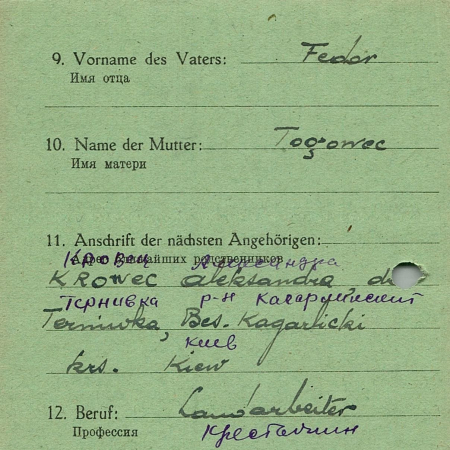 9. Vorname des Vaters: Fedor
Имя отца
10. Name der Mutter: Togowec
Имя матери
11. Anschrift der nächsten Angehörigen:
Адрес ближайших родственников
Кровец Александра
Krowec Aleksandra,
Тернивка р-н Кагарлицский
Terniwka, Bes. Kagarlicki
Киев
krs. Kiew
12. Beruf: Landarbeiter
Профессия Крестьянин